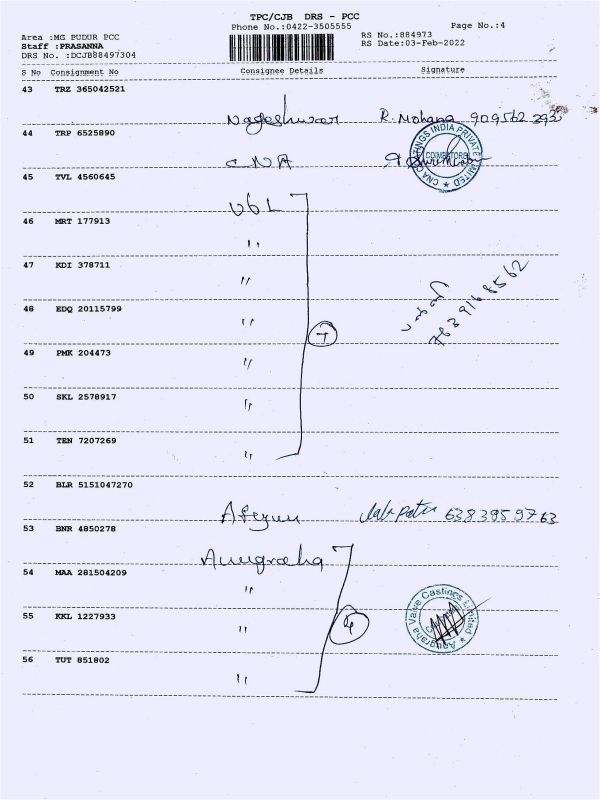 TPC/CJB DRS - PCC
Phone No.:0422-3505555 Page No.:4
Area :MG PUDUR PCC RS No.:884973
Staff :PRASANNA RS Date:03-Feb-2022
DRS No. :DCJB88497304
S No Consignment No Consignee Details Signature
43 TRZ 365042521
Nageshwar R. Mohana
44 TRP 6525890
CNA
CNA CASTINGS INDIA PRIVATE LIMITED
COIMBATORE
45 TVL 4560645
UGL
46 MRT 177913
"
47 KDI 378711
"
48 EDQ 20115799
"
7
49 PMK 204473
"
50 SKL 2578917
"
51 TEN 7207269
"
52 BLR 5151047270
6383959763
53 BNR 4850278
Anugraha
54 MAA 281504209
"
55 KKL 1227933
"
4
Anugraha Valve Castings Limited
56 TUT 851802
"